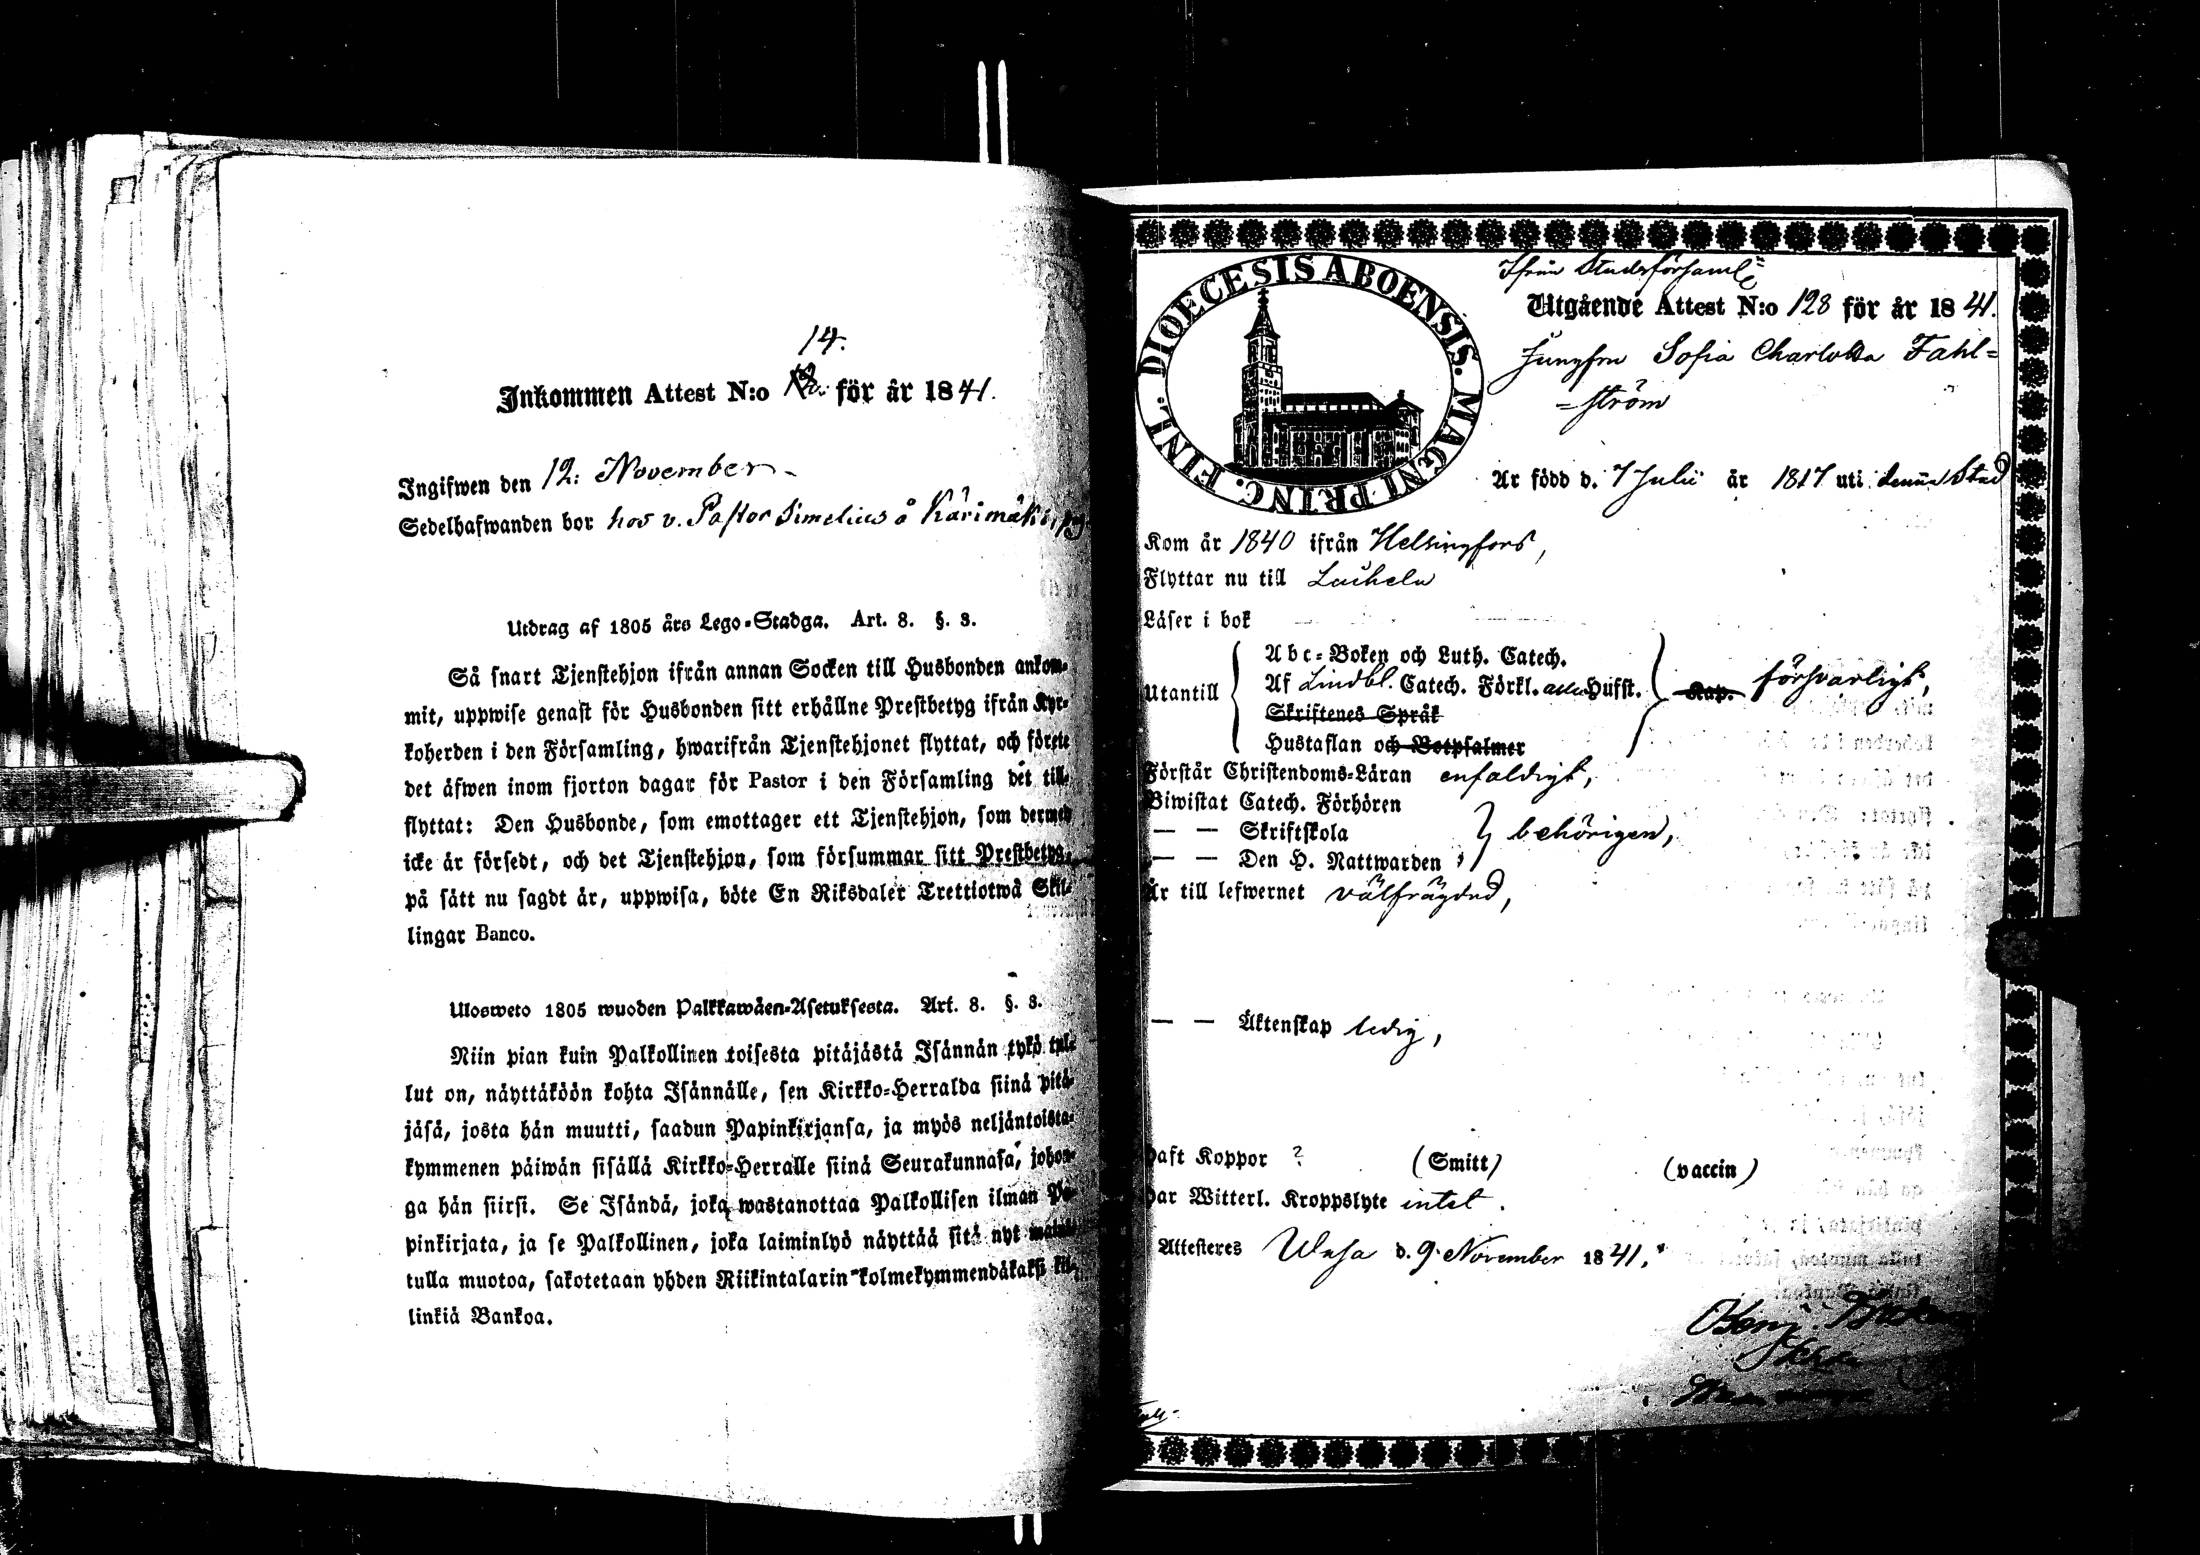 14.
Inkommen Attest N:o för år 1841.
Ingifwen den 12: November
Sedelhafwanden bor hos v. Pastor Simelius å Kärimäki
Utdrag af 1805 års Lego-Stadga. Art. 8. §. 3.
Så snart Tjenstehjon ifrån annan Socken till Husbonden ankom-
mit, uppwise genast för Husbonden sitt erhållne Prestbetyg ifrån Kyr-
koherden i den Församling, hwarifrån Tjenstehjonet flyttat, och förete
det äfwen inom fjorton dagar för Pastor i den Församling det till-
flyttat: Den Husbonde, som emottager ett Tjenstehjon, som dermed
icke är försedt, och det Tjenstehjon, som försummar sitt Prestbetyg,
på sätt nu sagdt är, uppwisa, böte En Riksdaler Trettiotwå Skil-
lingar Banco.
Ulosweto 1805 wuoden Palkkawäen-Asetuksesta. Art. 8. §. 3.
Niin pian kuin Palkollinen toisesta pitäjästä Isännän tykö tul-
lut on, näyttäköön kohta Isännälle, sen Kirkko-Herralda siinä pitä-
jäsä, josta hän muutti, saadun Papinkirjansa, ja myös neljäntoista-
kymmenen päiwän sisällä Kirkko-Herralle siinä Seurakunnasa, johon-
ga hän siirsi. Se Isändä, joka wastanottaa Palkollisen ilman Pa-
pinkirjata, ja se Palkollinen, joka laiminlyö näyttää sitä nyt mainit-
tulla muotoa, sakotetaan yhden Riikintalarin kolmekymmendäkaksi kil-
linkiä Bankoa.
DIOECESIS ABOENSIS. MAGNI PRINC. FINL.
Ifrån Stadsförsaml
Utgående Attest N:o 128 för år 1841.
Jungfru Sofia Charlotta Fahl=
=ström
Är född d. 7 Julii år 1817 uti denna Stad
Kom år 1840 ifrån Helsingfors,
Flyttar nu till Laihela
Läser i bok
Utantill
Abc-Boken och Luth. Catech.
Af Lindbl. Catech. Förkl. alla Hufst.
Kap. försvarligt,
Skriftenes Språk
Hustaflan och Botpsalmer
Förstår Christendoms-Läran enfaldigt,
Biwistat Catech. Förhören
— — Skriftskola
behörigen,
— — Den H. Nattwarden
Är till lefwernet välfrägdad,
— — Äktenskap ledig,
Haft Koppor ? (Smitt) (vaccin)
Har Witterl. Kroppslyte intet.
Attesteres Wasa d. 9. November 1841.
Benj.